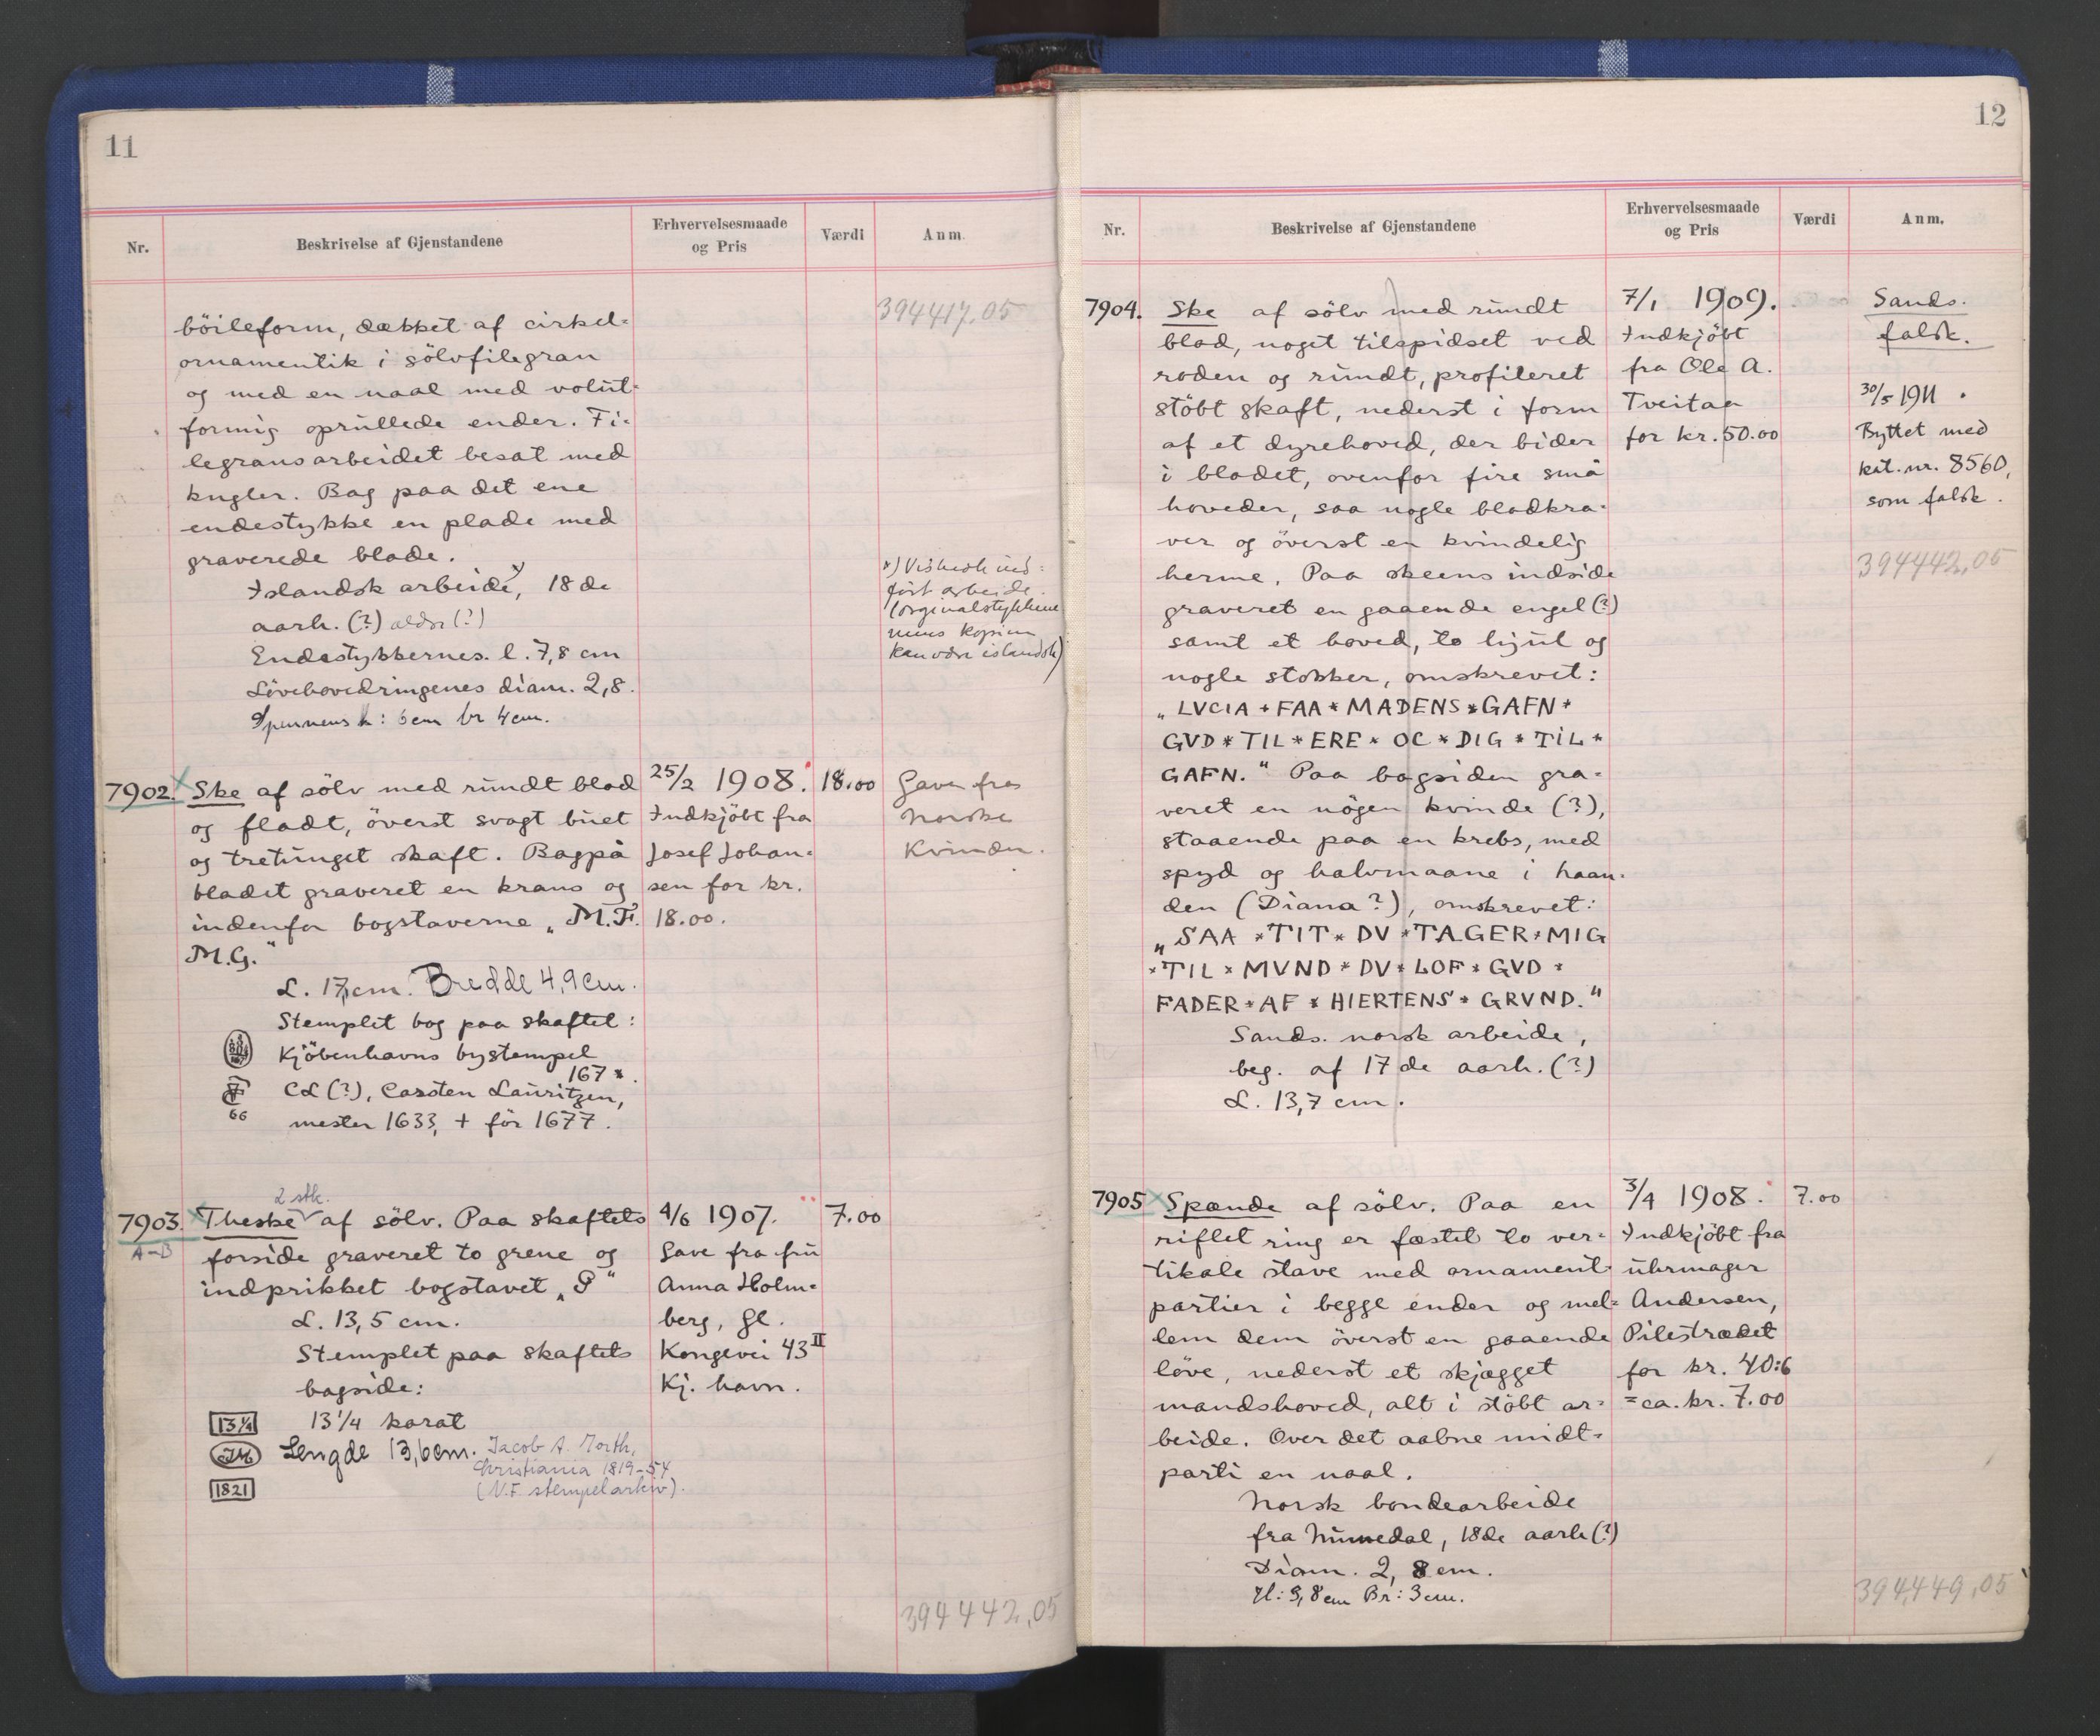 11
Nr.
Beskrivelse af Gjenstandene
Erhvervelsesmaade
og Pris
Værdi
Anm.
394417.05
böileform, dækket af cirkel=
ornamentik i sölvfilegran
og med en naal med volut=
formig oprullede ender. Fi=
legransarbeidet besat med
kugler. Bag paa det ene
endestykke en plade med
graverede blade.
Islandsk arbeide, 18de
aarh. (?) ældre (?)
Endestykkernes l. 7,8 cm
Lövehovedringenes diam. 2,8.
Spennens h: 6cm br 4cm.
ind=
fört arbeide.
(orginalstykkene
mens kopien
kan være islandsk)
7902. Ske af sölv med rundt blad
og fladt, överst svagt buet
og tretunget skaft. Bagpå
bladet graveret en krans og
indenfor bogstaverne „M.F.
M.G."
L. 17, cm. Bredde 4,9cm.
Stemplet bag paa skaftet:
Kjöbenhavns bystempel
167*.
CL (?), Carsten Lauritzen,
66
mester 1633, + för 1677.
25/2 1908.
Indkjöbt fra
Josef Johan=
sen for kr.
18.00.
18.00
Gave fra
Norske
Kvinder.
2 stk.
7903. Theske af sölv. Paa skaftets
A-B
forside graveret to grene og
indprikket bogstavet „P"
L. 13,5 cm.
Stemplet paa skaftets
bagside:
13 1/4 13 1/4 karat
JM Lengde 13,6cm. Jacob A. Morth,
Christiania 1819-54
(N.F. stempelarkiv).
1821
4/6 1907.
Gave fra fru
Anna Holm=
berg, Gl.
Kongevei 43 II
Kj. havn.
7.00
394442,05
12
Nr.
Beskrivelse af Gjenstandene
Erhvervelsesmaade
og Pris
Værdi
Anm.
7904. Ske af sölv med rundt
blad, noget tilspidset ved
roden og rundt, profileret
stöbt skaft, nederst i form
af et dyrehoved, der bider
i bladet, ovenfor fire små
hoveder, saa nogle bladkra=
ver og överst en kvindelig
herme. Paa skeens indside
graveret en gaaende engel (?)
samt et hoved, to hjul og
nogle stokker, omskrevet:
„LVCIA * FAA * MADENS * GAFN *
GVD * TIL * ERE * OC * DIG * TIL *
GAFN." Paa bagsiden gra=
veret en nögen kvinde (?),
staaende paa en krebs, med
spyd og halvmaane i haan=
den (Diana?), omskrevet:
„SAA * TIT * DV * TAGER * MIG
* TIL * MVND * DV * LOF * GVD *
FADER * AF * HIERTENS * GRVND."
Sands. norsk arbeide,
beg. af 17de aarh. (?)
L. 13,7 cm.
7/1 1909.
Indkjöbt
fra Ole A.
Tveitaa
for kr. 50.00
Sands.
falsk.
30/5 1911.
Byttet med
kat. nr. 8560,
som falsk.
394442,05
7905 Spænde af sölv. Paa en
riflet ring er fæstet to ver=
tikale stave med ornament=
partier i begge ender og mel=
lem dem överst en gaaende
löve, nederst et skjægget
mandshoved, alt i stöbt ar=
beide. Over det aabne midt=
parti en naal.
Norsk bondearbeide
fra Numedal, 18de aarh (?)
Diam. 2,8 cm.
H: 3,8cm Br: 3cm.
3/4 1908.
Indkjöbt fra
uhrmager
Andersen,
Pilestrædet
for kr. 40:6
= ca. kr. 7.00
7.00
394,449,05